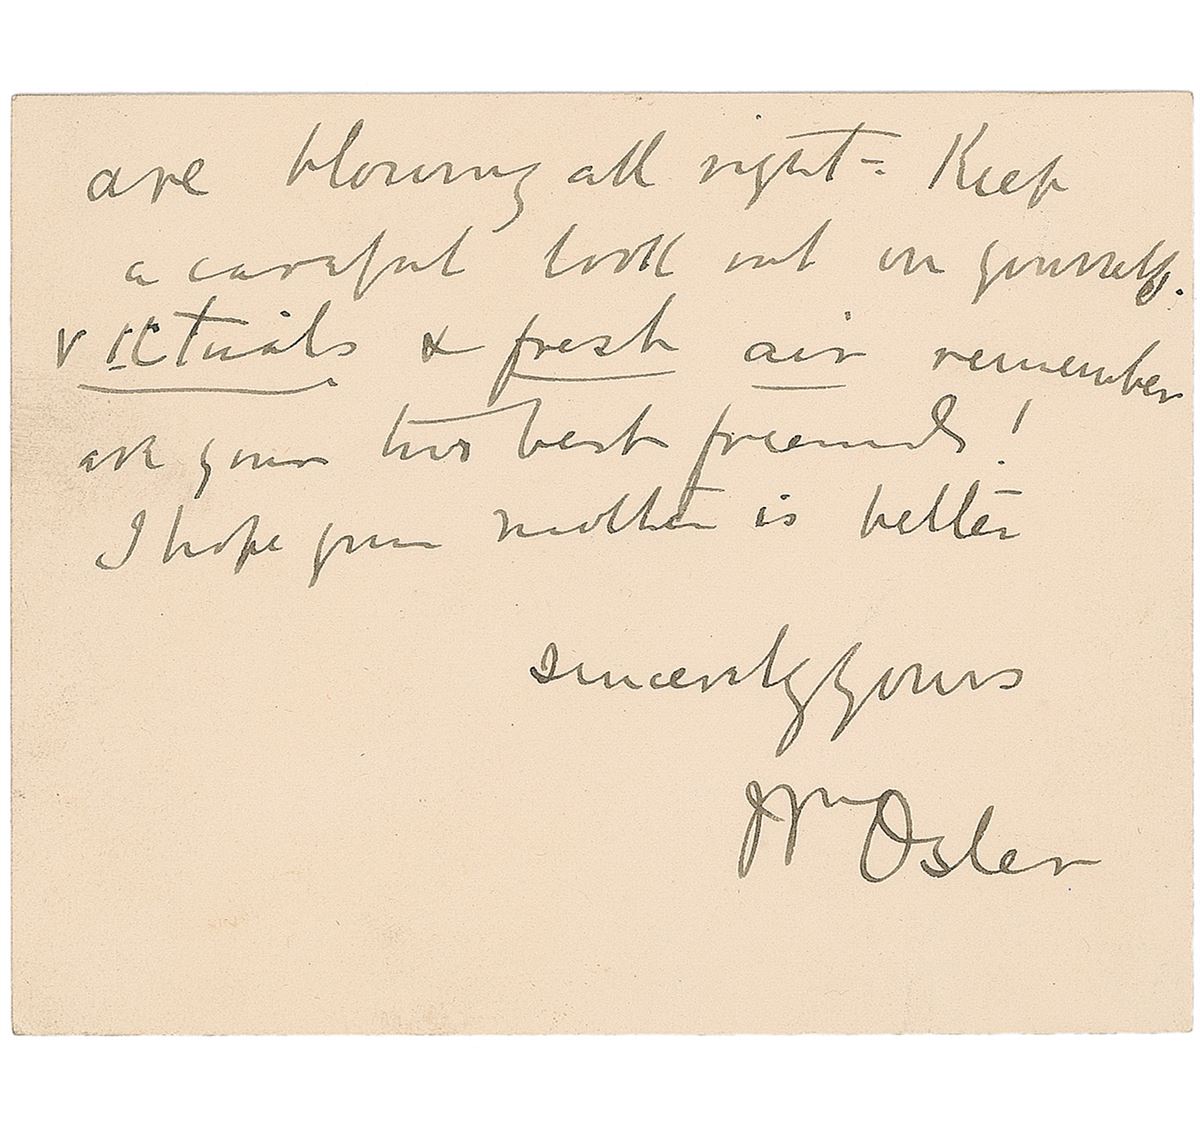 are blowing all right = Keep
a careful look out on yourself.
victuals & fresh air remember
are your two best friends!
I hope your mother is better
sincerely yours
Wm Osler